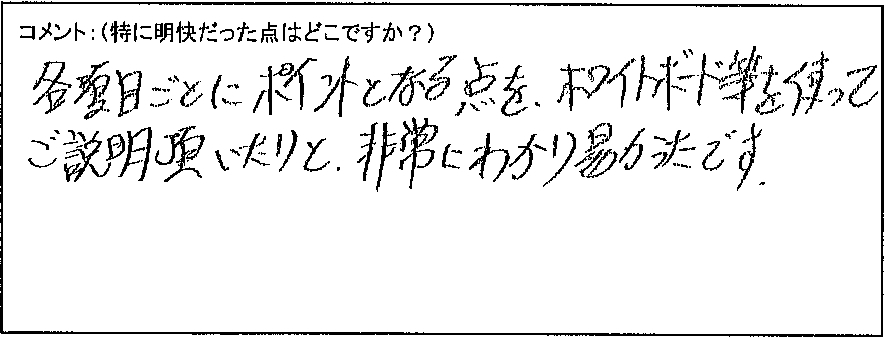 コメント：（特に明快だった点はどこですか？）
各項目ごとにポイントとなる点を、ホワイトボード等を使って
ご説明頂いたりと、非常にわかり易かったです。